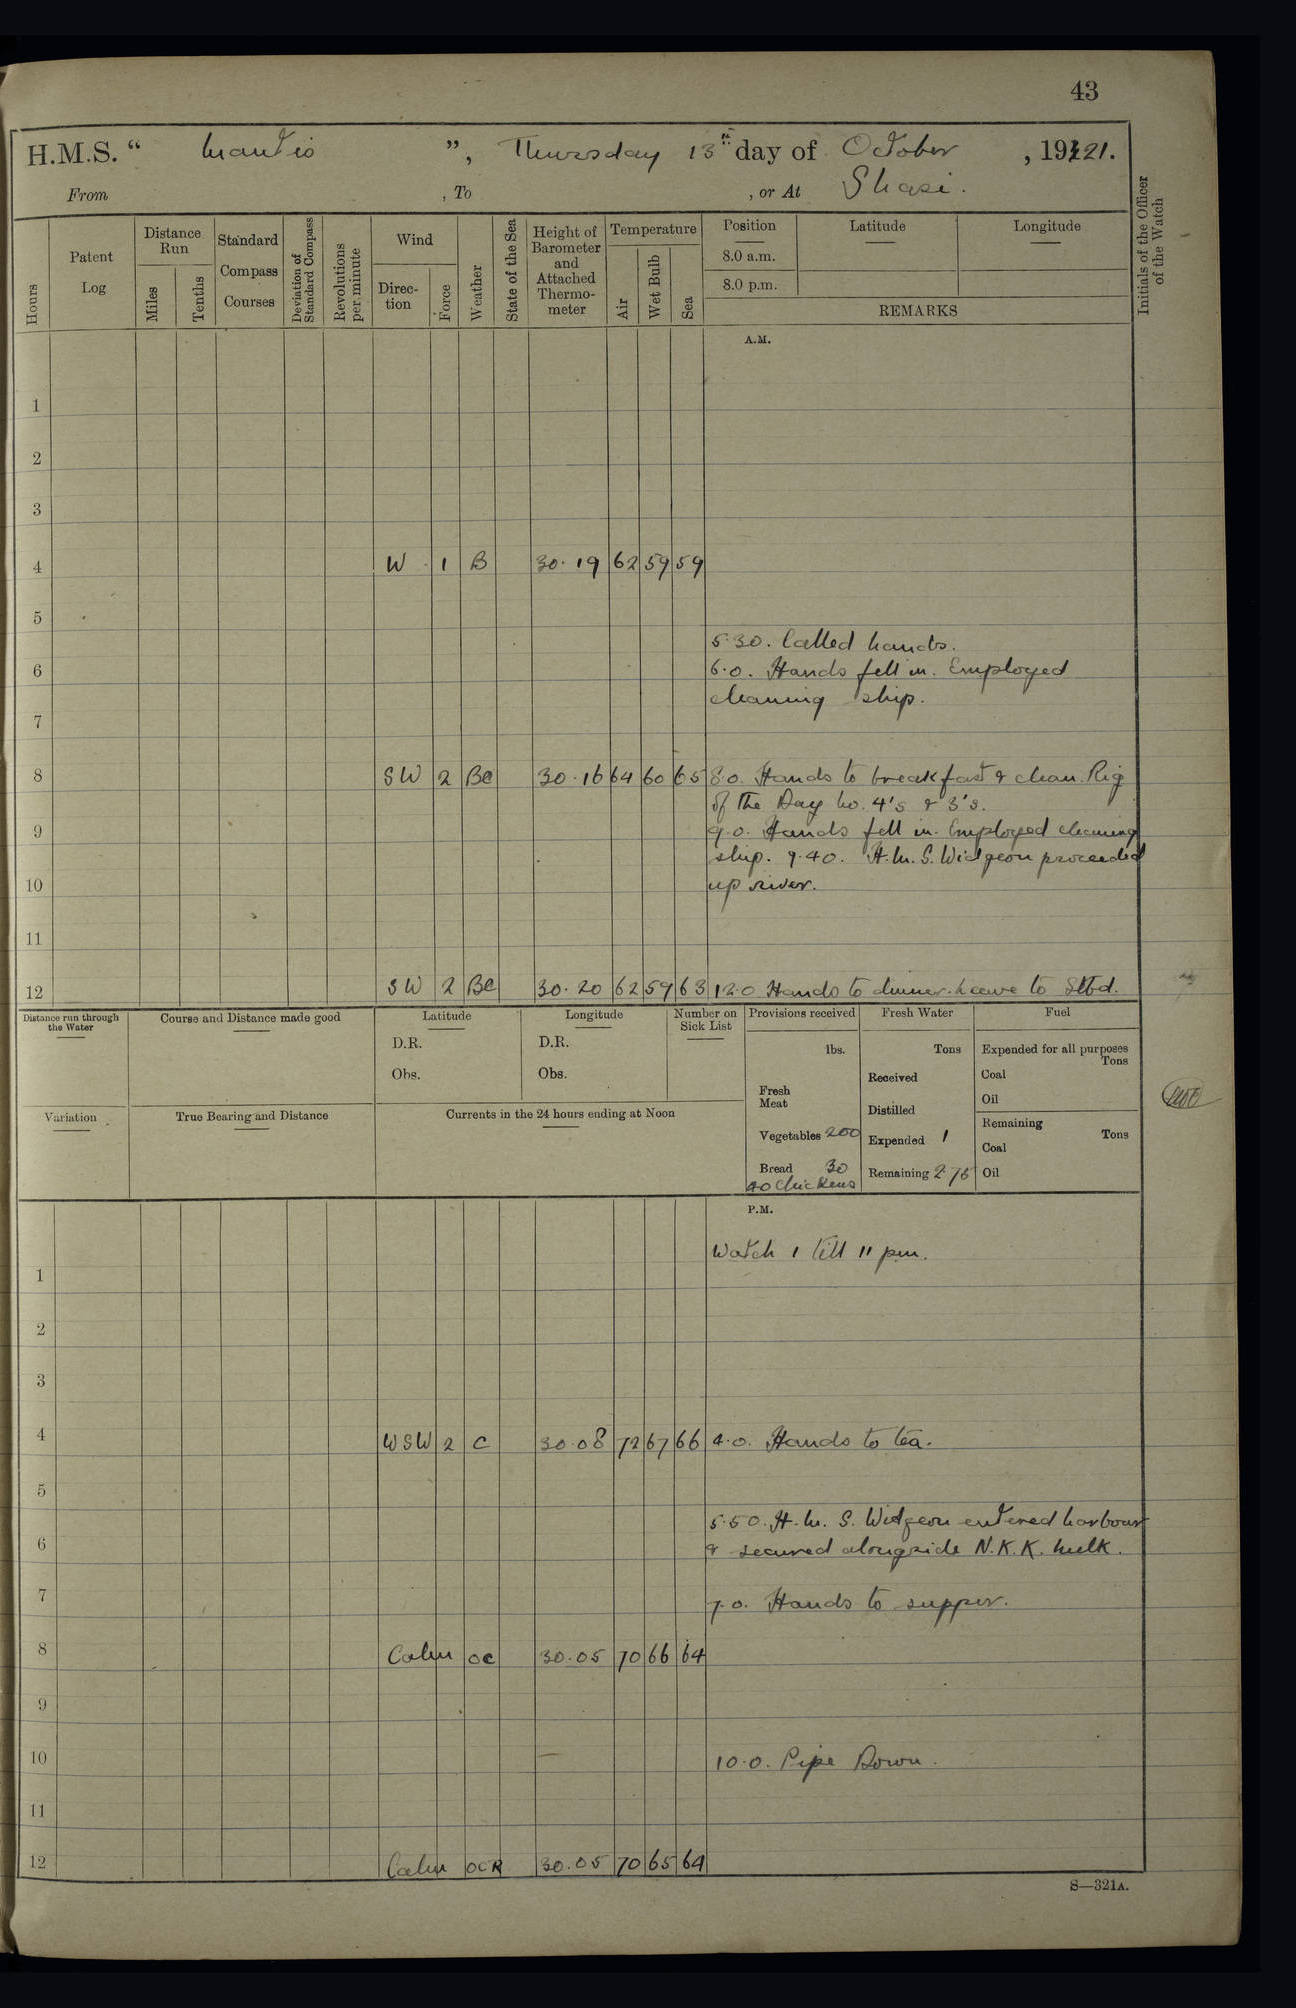 43
H.M.S. “ Mantis ”, Thursday 13th day of October , 1921.
From , To , or At Shasi.
Hours
Patent Log
Distance Run
Miles
Tenths
Standard Compass Courses
Deviation of Standard Compass
Revolutions per minute
Wind
Direction
Force
Weather
State of the Sea
Height of Barometer and Attached Thermometer
Temperature
Air
Wet Bulb
Sea
Position
8.0 a.m.
8.0 p.m.
Latitude
Longitude
REMARKS
Initials of the Officer of the Watch
A.M.
1
2
3
4 W 1 B 30.19 62 59 59
5
5.30. Called hands.
6 6.0. Hands fell in. Employed
cleaning ship.
7
8 SW 2 BC 30.16 64 60 65 8.0. Hands to breakfast & clean. Rig
of the Day No. 4's & 3's.
9 9.0. Hands fell in. Employed cleaning
ship. 9.40. H.M.S. Widgeon proceeded
10 up river.
11
12 SW 2 BC 30.20 62 59 63 12.0 Hands to dinner. Leave to Stbd.
Distance run through the Water
Course and Distance made good
Latitude
D.R.
Obs.
Longitude
D.R.
Obs.
Number on Sick List
Provisions received
lbs.
Fresh Meat
Vegetables 200
Bread 30
40 Chickens
Fresh Water
Tons
Received
Distilled
Expended 1
Remaining 2.75
Fuel
Expended for all purposes
Tons
Coal
Oil
Remaining
Tons
Coal
Oil
Variation
True Bearing and Distance
Currents in the 24 hours ending at Noon
P.M.
Watch 1 till 11 pm.
1
2
3
4 WSW 2 C 30.08 72 67 66 4.0. Hands to tea.
5
5.50. H.M.S. Widgeon entered harbour
6 & secured alongside N.K.K. hulk.
7 7.0. Hands to supper.
8 Calm OC 30.05 70 66 64
9
10 10.0. Pipe Down.
11
12 Calm OCR 30.05 70 65 64
S—321A.